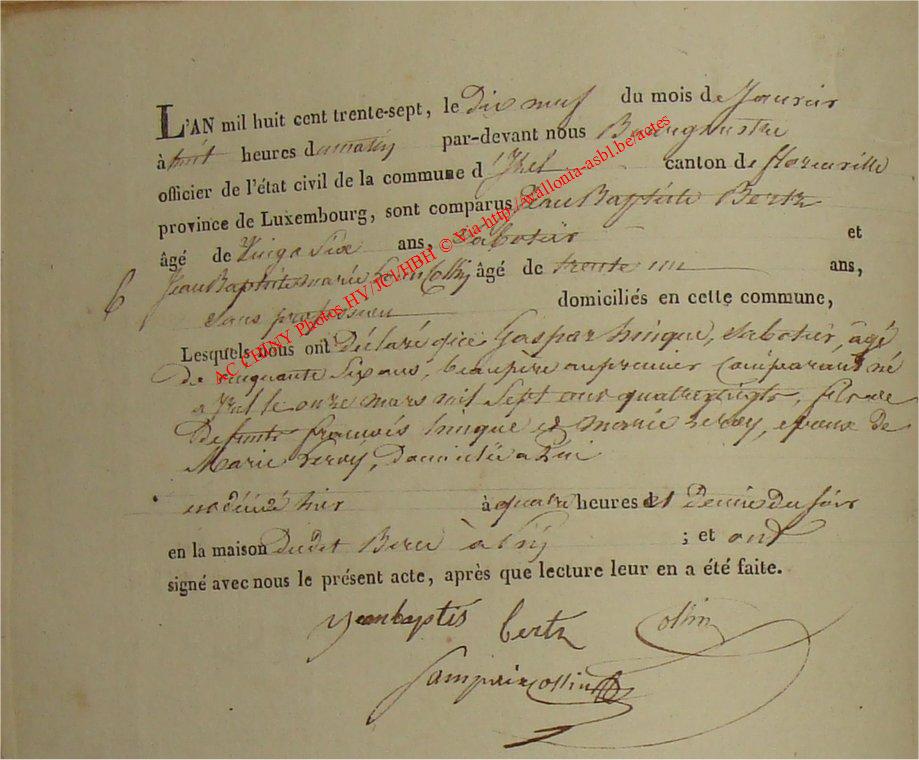 L'AN mil huit cent trente-sept, le Dix neuf du mois de Janvier
à huit heures du matin par-devant nous Bourgmestre
officier de l'état civil de la commune d'Izel canton de florenville
province de Luxembourg, sont comparus Jean Baptiste Bertz
âgé de Vingt Six ans, Sabotier et
6 Jean Baptiste marie Collin âgé de trente un ans,
Sans profession domiciliés en cette commune,
Lesquels nous ont Déclaré que Gaspar hinque, Sabotier, âgé
De cinquante Six ans, beaupère au premier Comparant né
a Izel le onze mars mil Sept cent quatrevingts, fils de
Defunts francois hinque et marie, epoux de
Marie, Domicilié a
est décédé hier à quatre heures et Demie du Soir
en la maison Dudit à ; et ont
signé avec nous le présent acte, après que lecture leur en a été faite.
jean baptis bertz Collin
Collin
AC CHINY Photos HV/JCVHBH © Via http://wallonia-asbl.be/actes